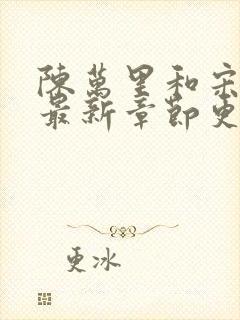 陳萬里和宋
最新章節更
更冰